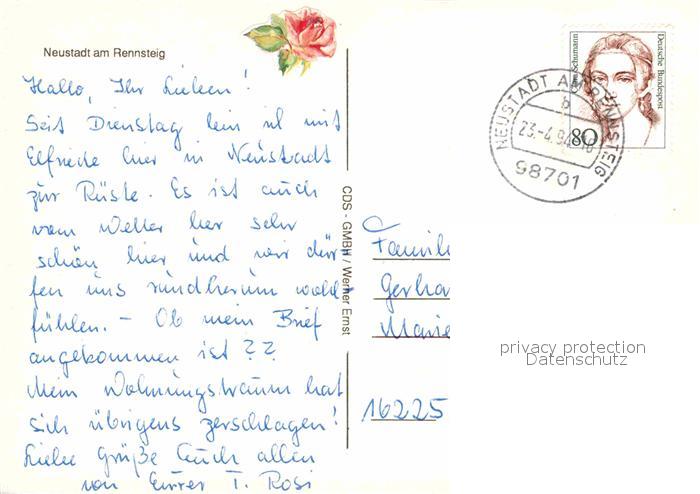 Neustadt am Rennsteig
Hallo, Ihr Lieben!
Seit Dienstag bin ich mit
Elfriede hier in Neustadt
zur Rüste. Es ist auch
vom Wetter her sehr
schön hier und wir dür
fen uns rundherum wohl
fühlen. – Ob mein Brief
angekommen ist??
Mein Wohnungstraum hat
sich übrigens zerschlagen!
Liebe Grüße Euch allen
von Eurer T. Rosi
CDS - GMBH / Werner Ernst
Deutsche Bundespost
80
NEUSTADT AM RENNSTEIG
b
23.-4.94
98701
Famili
Gerha
Marie
16225
privacy protection
Datenschutz